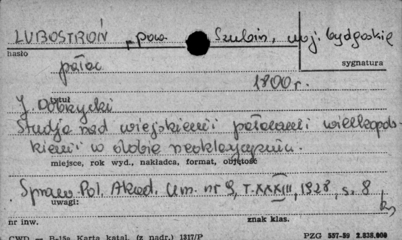 LUBOSTROŃ, pow. Szubin, woj. bydgoskie
hasło
sygnatura
pałac
1800 r.
tytuł
J. Dobrzycki
Studja nad wiejskiemi pałacami wielkopol-
skiemi w dobie neoklasycyzmu.
miejsce, rok wyd., nakładca, format, objętość
Spraw. Pol. Akad. Um. nr 8, T. XXXIII, 1928, s. 8
uwagi:
nr inw.
znak klas.
CWD — B-15a Karta katal. (z nadr.) 1317/P
PZG 557-59 2.838.000